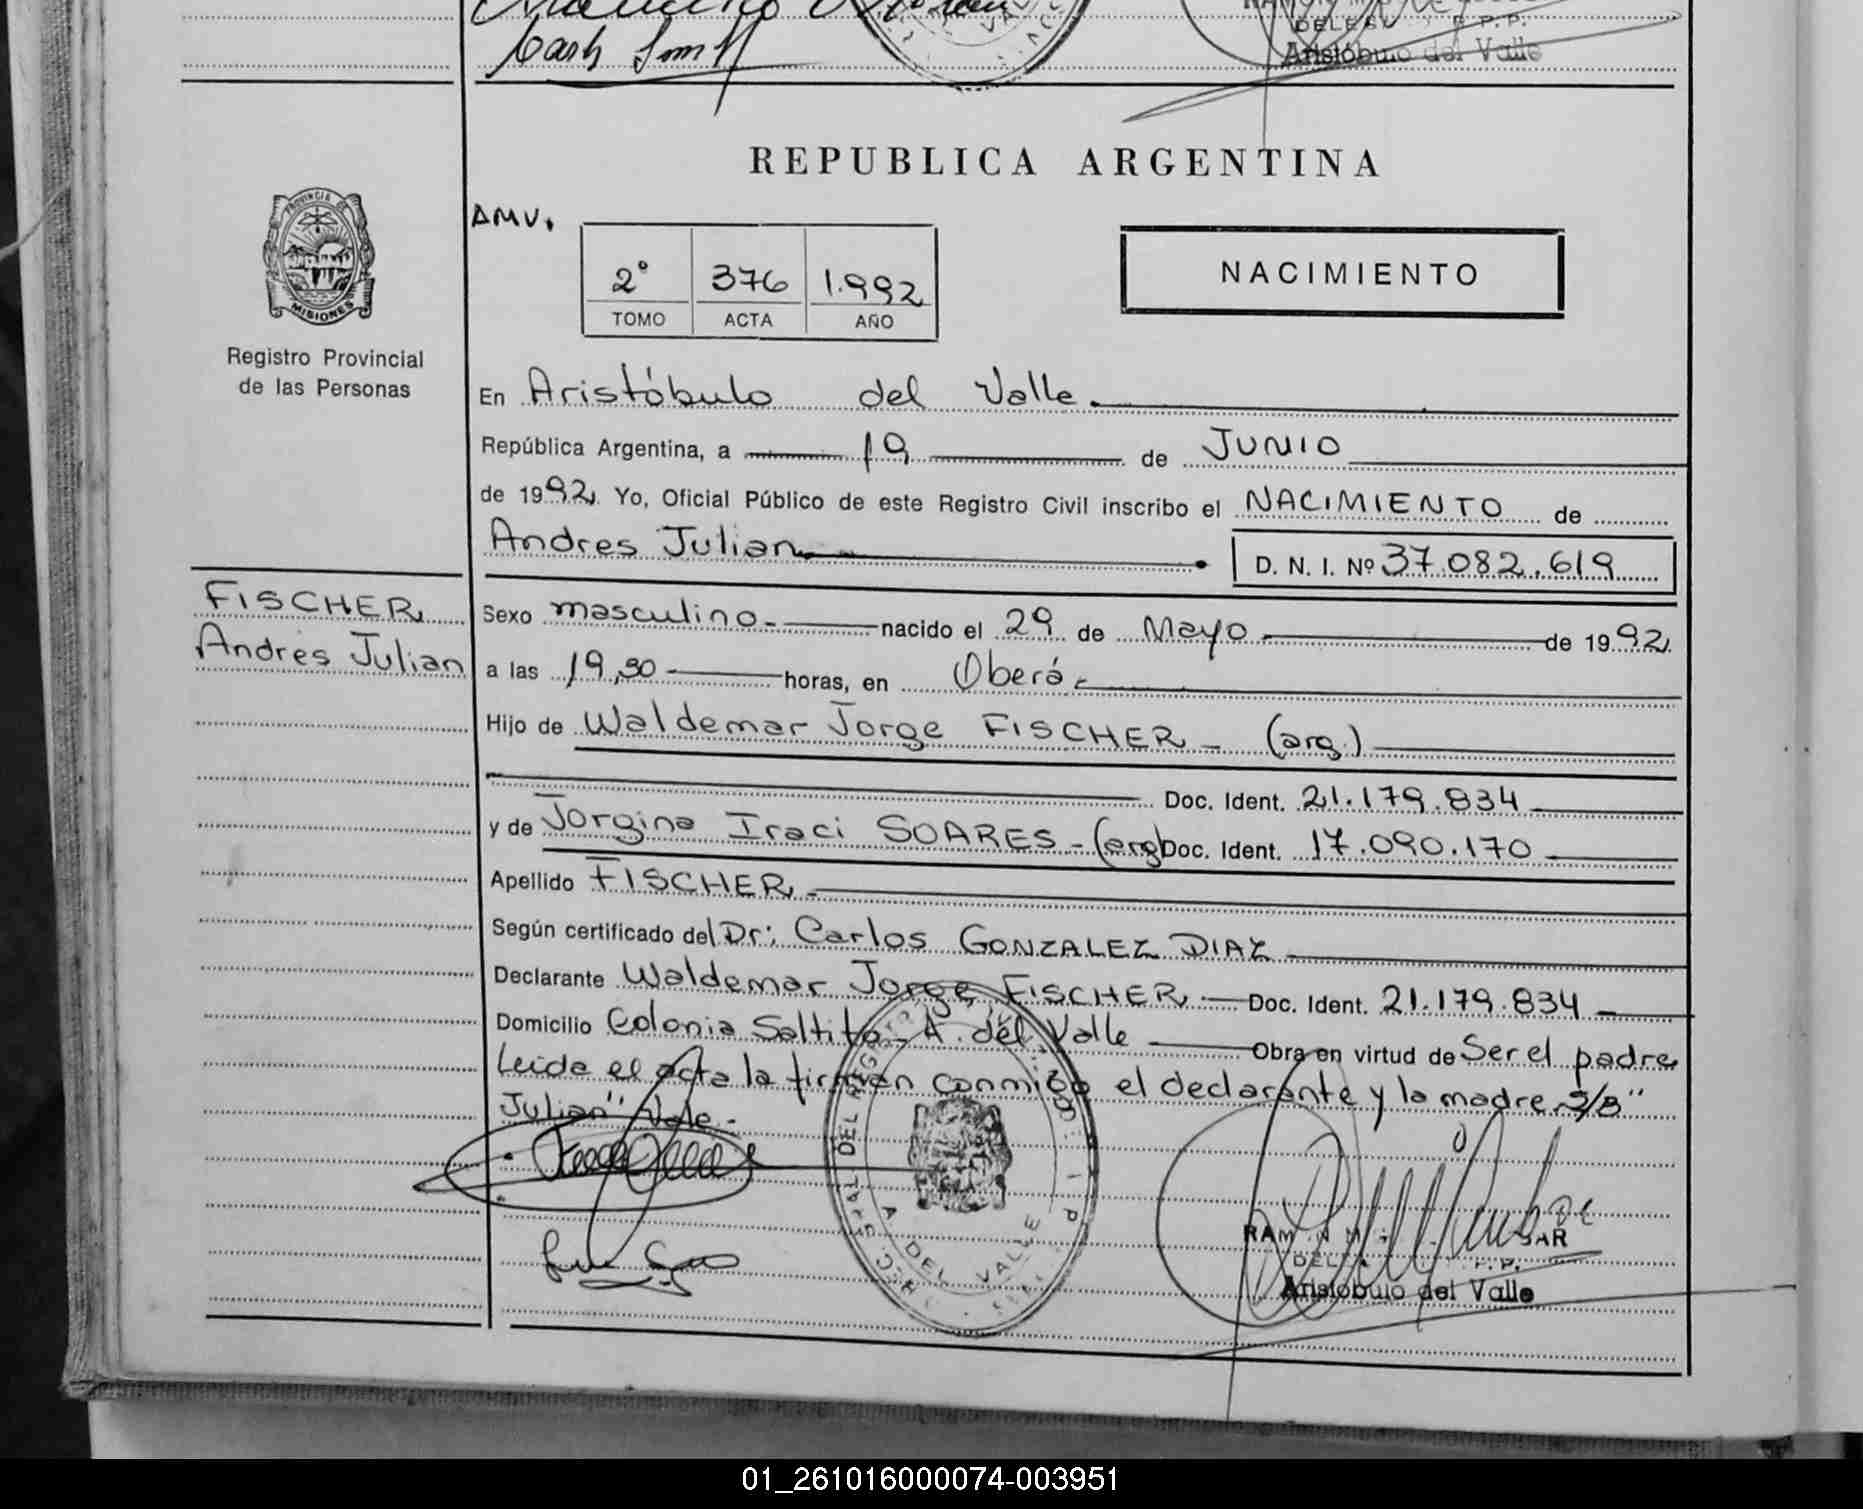 DELE
Aristóbulo del Valle
REPUBLICA ARGENTINA
PROVINCIA DE
MISIONES
AMV.
2° 376 1.992
TOMO ACTA AÑO
NACIMIENTO
Registro Provincial
de las Personas
En Aristóbulo del Valle.
República Argentina, a 19 de JUNIO
de 1992. Yo, Oficial Público de este Registro Civil inscribo el NACIMIENTO de
Andres Julian
D. N. I. Nº 37.082.619
FISCHER
Andres Julian
Sexo masculino nacido el 29 de Mayo de 1992.
a las 19,30 horas, en Oberá
Hijo de Waldemar Jorge FISCHER - (arg.)
Doc. Ident. 21.179.834
y de Jorgina Iraci SOARES - (arg) Doc. Ident. 17.090.170
Apellido FISCHER
Según certificado del Dr: Carlos GONZALEZ DIAZ
Declarante Waldemar Jorge FISCHER Doc. Ident. 21.179.834
Domicilio Colonia Saltito - A. del Valle Obra en virtud de Ser el padre
Leida el acta la firman conmigo el declarante y la madre. S/B "
Julian" Vale.
A DEL VALLE
Aristóbulo del Valle
01_261016000074-003951